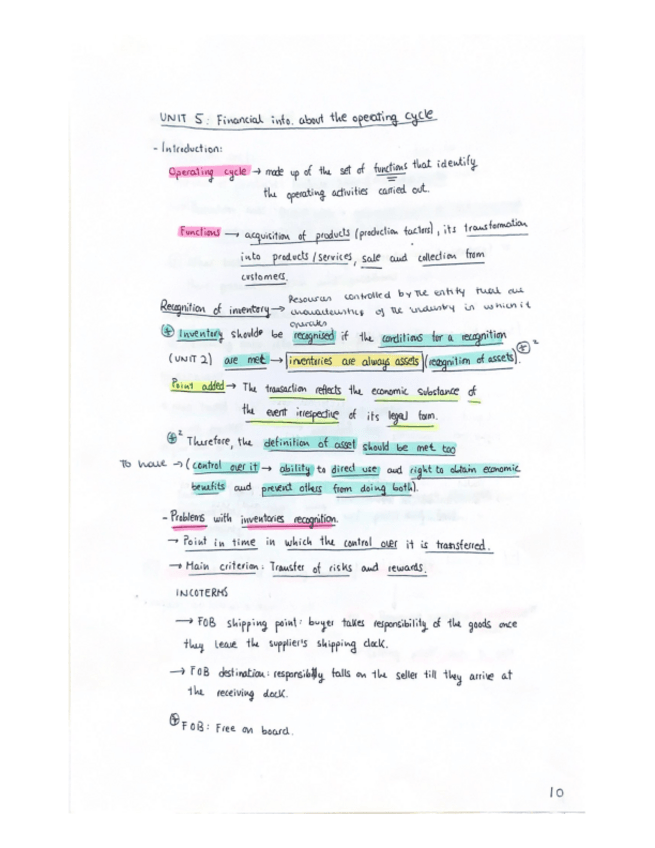 UNIT 5: Financial info. about the operating cycle
- Introduction:
Operating cycle → made up of the set of functions that identify
the operating activities carried out.
Functions → acquisition of products (production factors), its transformation
into products/services, sale and collection from
customers.
Recognition of inventory → Resources controlled by the entity that are
characteristics of the industry in which it
operates
* Inventory should be recognised if the conditions for a recognition
(UNIT 2) are met → inventories are always assets (recognition of assets). *2
Point added → The transaction reflects the economic substance of
the event irrespective of its legal form.
*2 Therefore, the definition of asset should be met too
To have → (control over it → ability to direct use and right to obtain economic
benefits and prevent others from doing both).
- Problems with inventories recognition.
→ Point in time in which the control over it is transferred.
→ Main criterion: Transfer of risks and rewards.
INCOTERMS
→ FOB shipping point: buyer takes responsibility of the goods once
they leave the supplier's shipping dock.
→ FOB destination: responsibility falls on the seller till they arrive at
the receiving dock.
* FOB: Free on board.
10